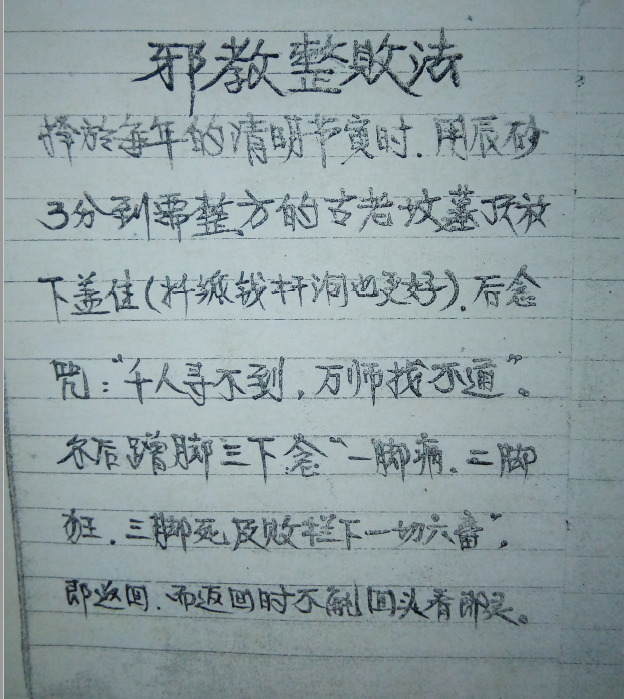 邪教整败法
择於每年的清明节寅时.用辰砂
3分到需整方的古老坟墓顶放
下盖住(扦纸钱杆洞也更好).后念
咒:"千人寻不到,万师找不通"。
尔后蹭脚三下念"一脚病.二脚
狂.三脚死及败栏下一切六畜",
即返回.而返回时不能回头看即灵。